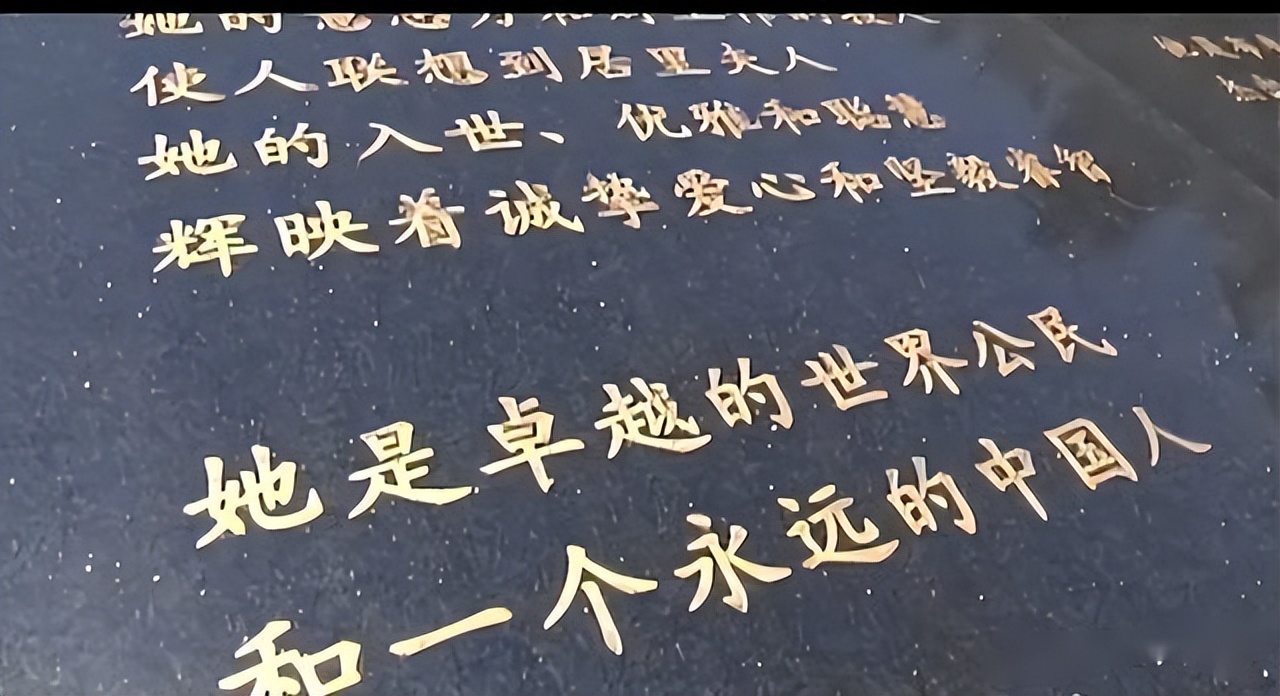 她的
使人联想到居里夫人
她的入世、优雅和聪慧
辉映着诚挚爱心和坚毅睿智
她是卓越的世界公民
和一个永远的中国人